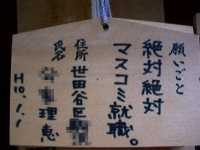 願いごと
絶対絶対
マスコミ就職。
住所
世田谷区
氏名
理恵
H10.1.1